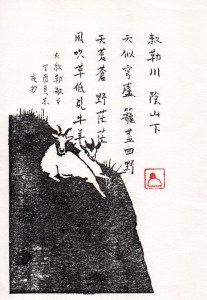 敕勒川 陰山下
天似穹廬 籠蓋四野
天蒼蒼 野茫茫
風吹草低見牛羊
敕勒歌
丁酉